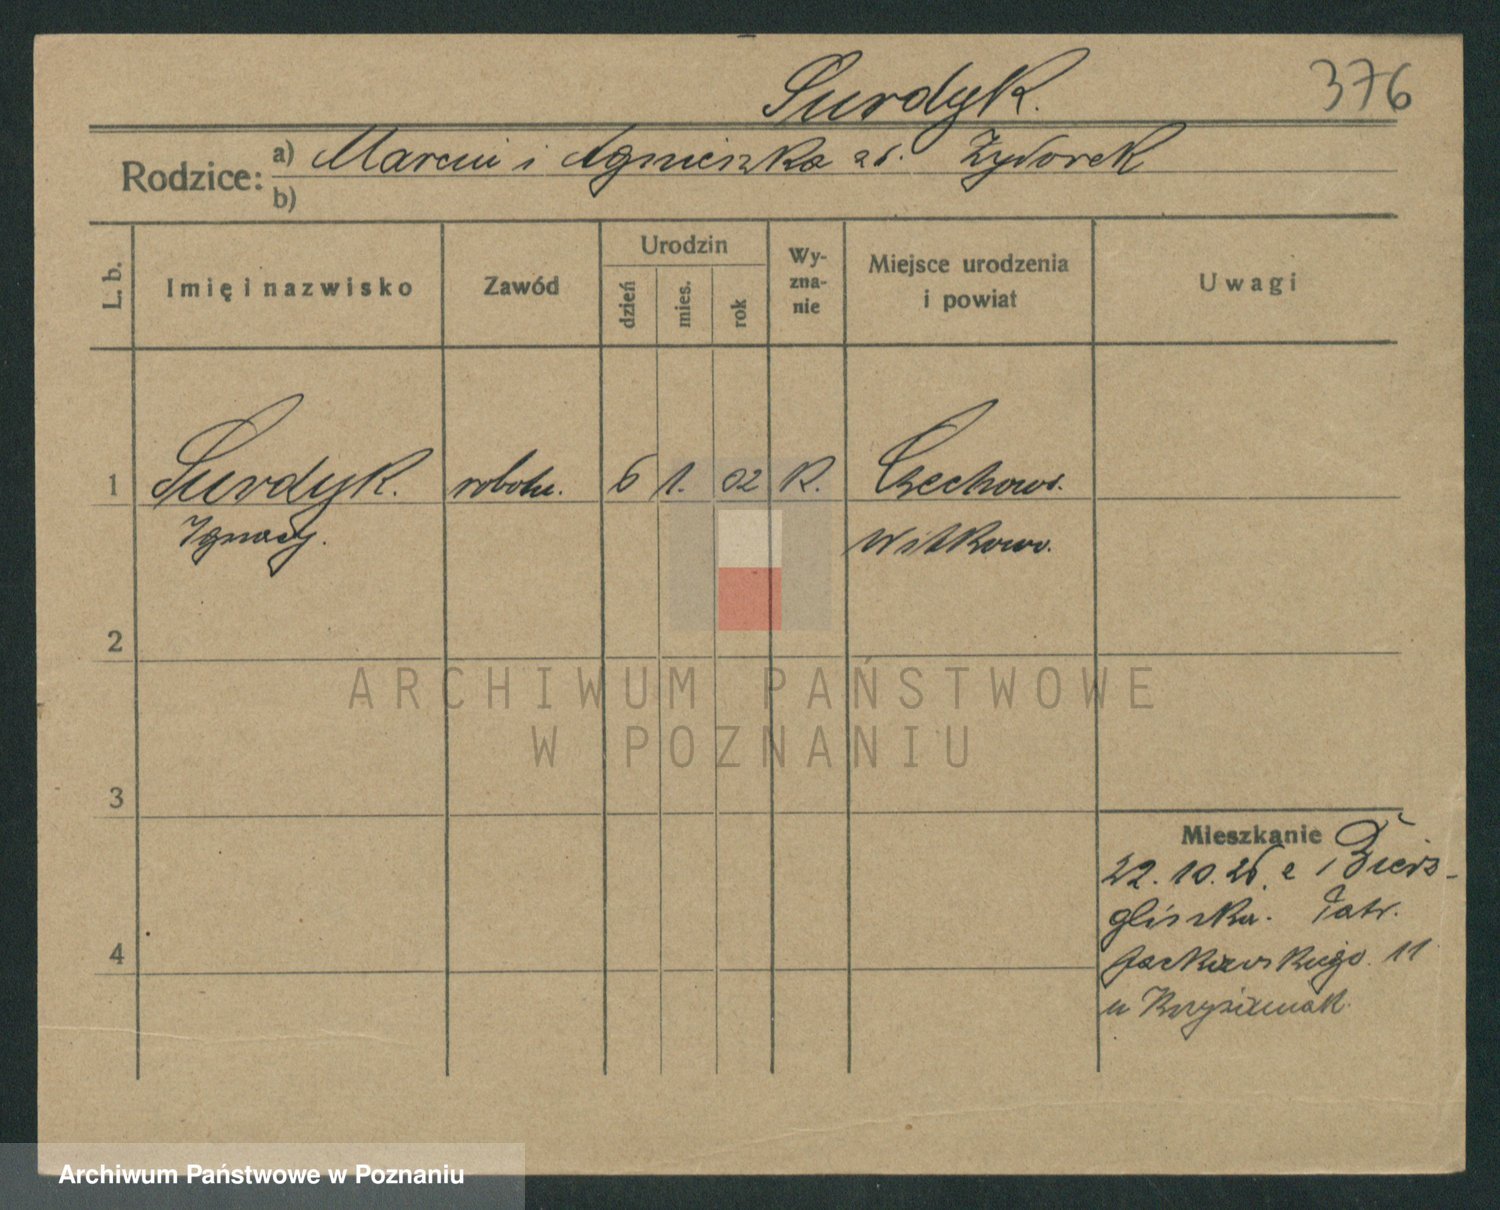 Surdyk. 376
Rodzice: a) Marcin i Agnieszka zd. Zydorek
b)
L. b. Imię i nazwisko Zawód Urodzin dzień mies. rok Wyznanie Miejsce urodzenia i powiat Uwagi
1 Surdyk. robotn. 6 1. 02 R. Czechowo.
Ignacy. Witkowo.
2
ARCHIWUM PAŃSTWOWE
W POZNANIU
3
Mieszkanie
22.10.26. z Bierz-
gliszka. Patr.
4 Jackowskiego. 11
u Krzyżaniak
Archiwum Państwowe w Poznaniu